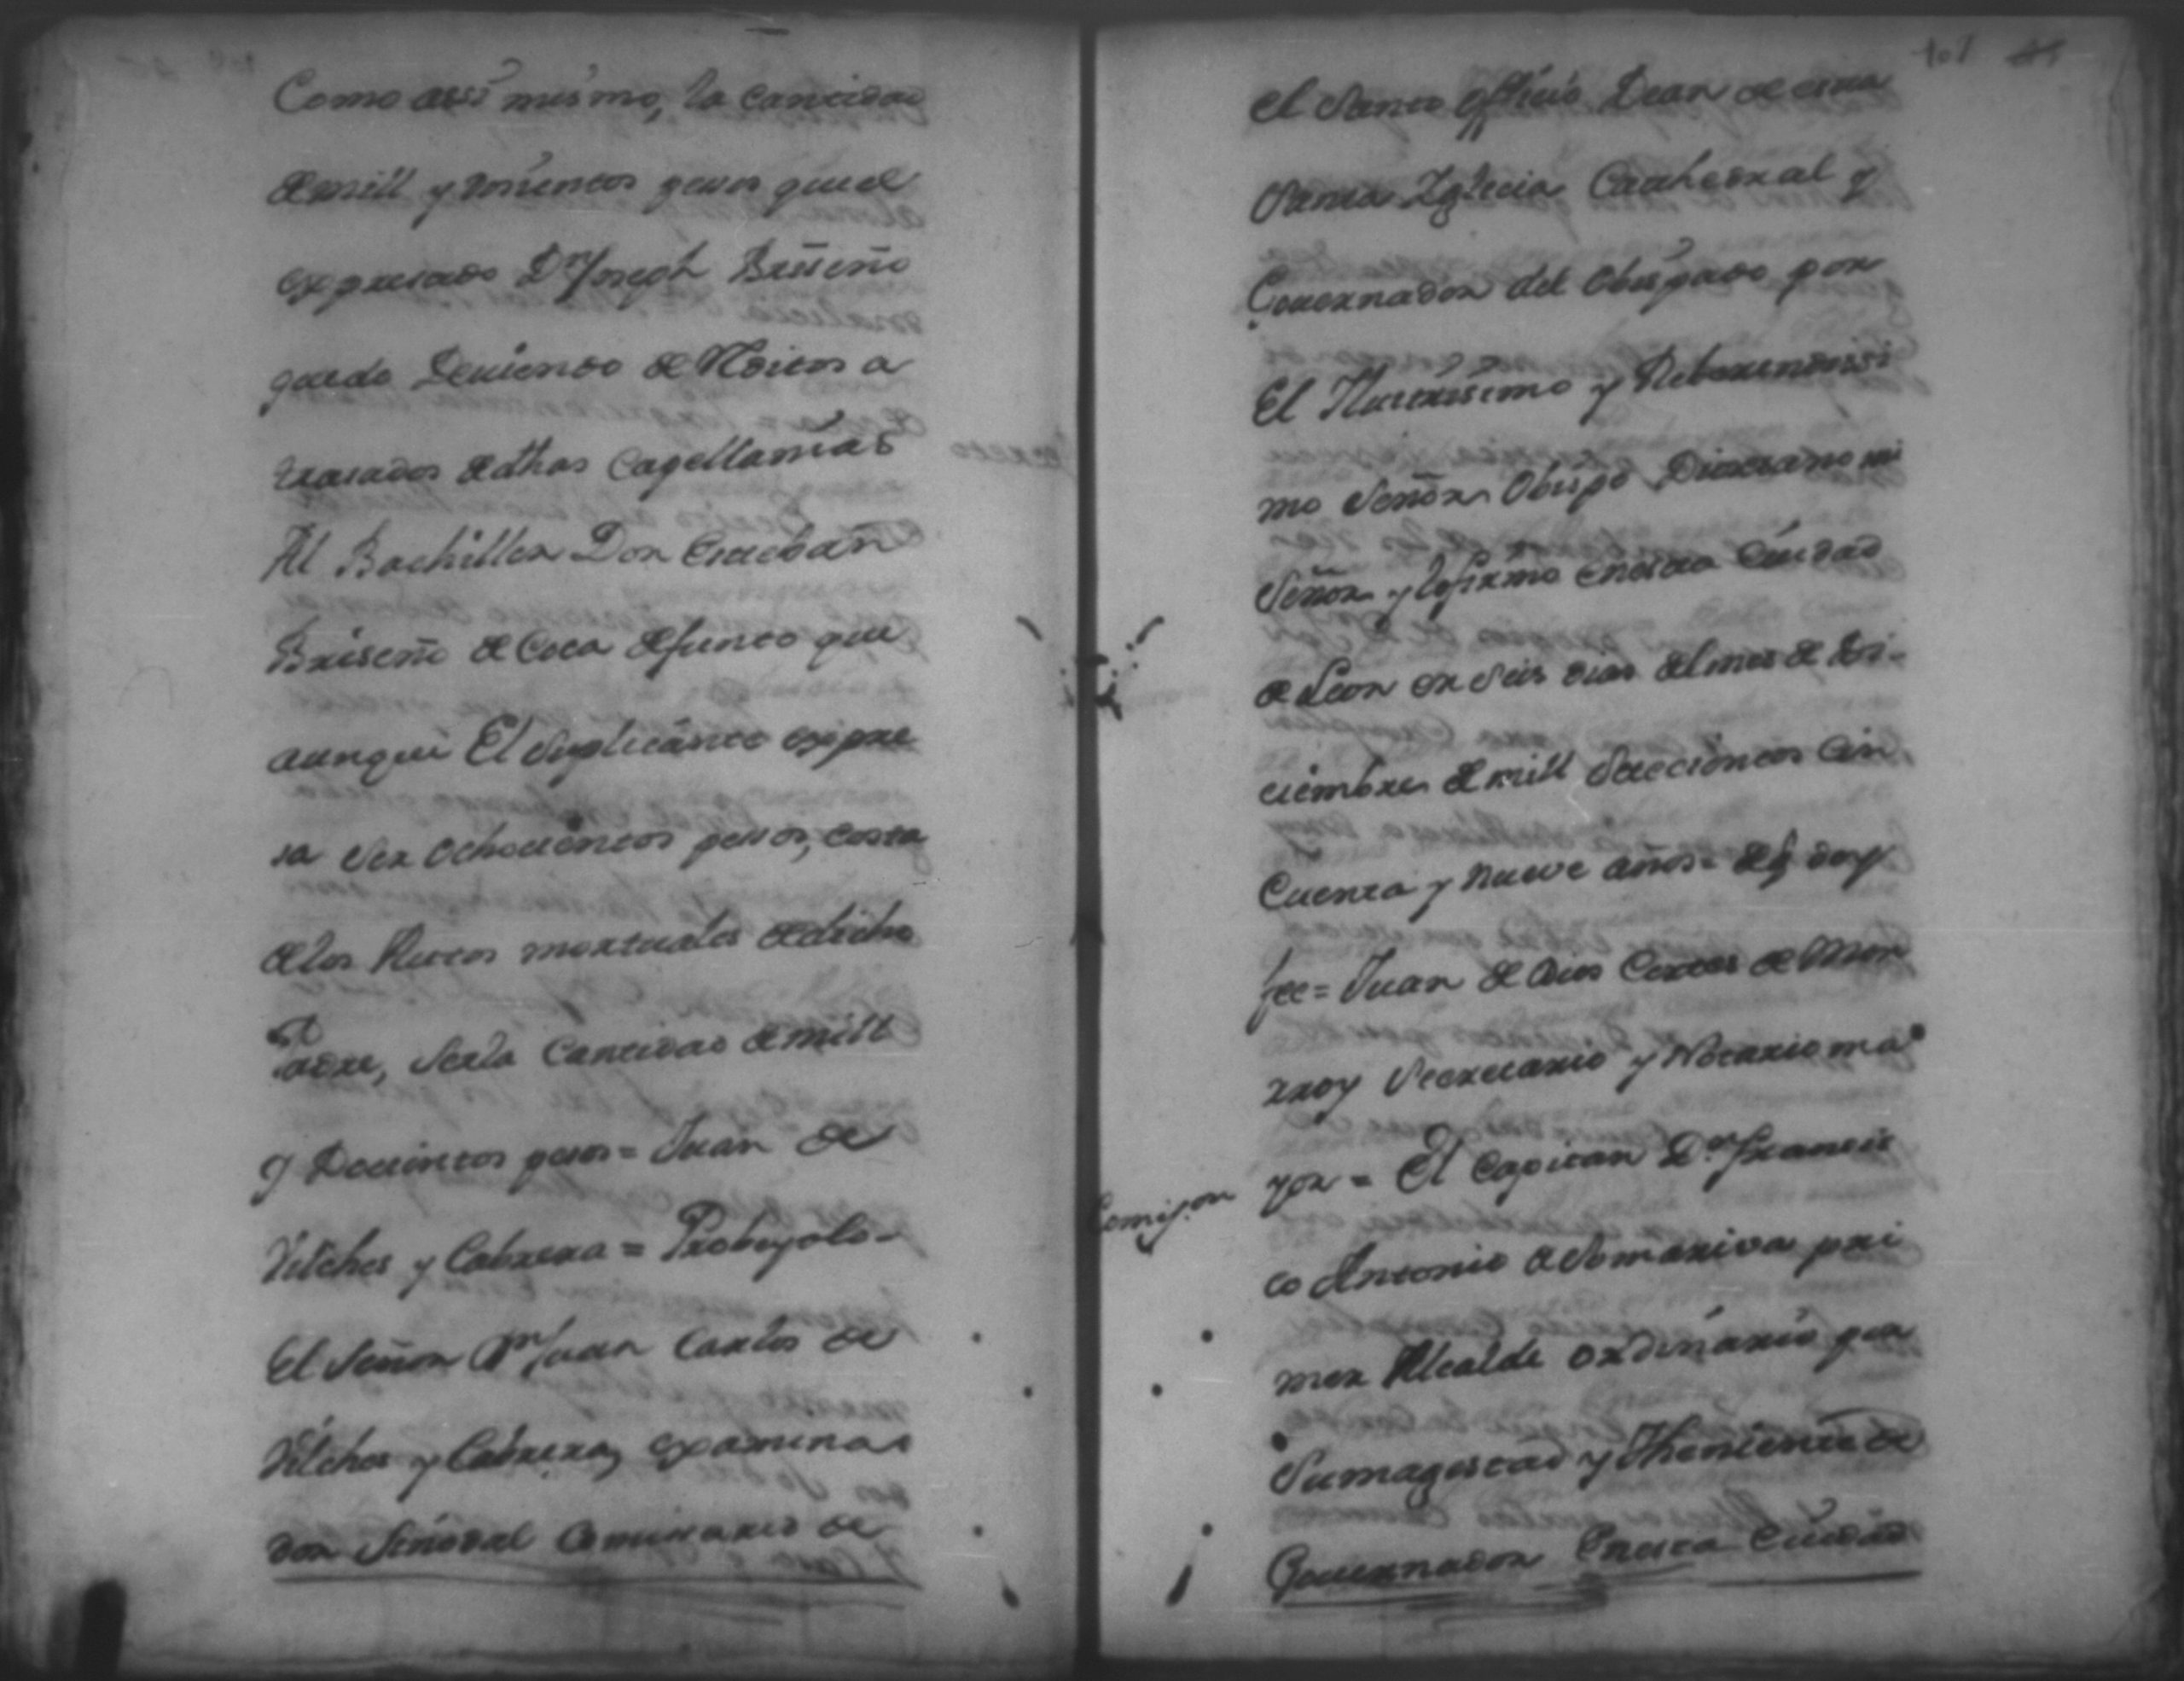 Como assi mismo, la cantidad
de mill y dosientos pesos que el
expresado Dn Joseph Briseño
quedo Deviendo de Rditos a
trasados de dhas Capellanias
Al Bachiller Don Esteban
Briseño de Coca defunto que
aunque El Suplicante expre
sa ser ochocientos pesos, costa
de los Autos mortuales de dicho
Padre, ser la Cantidad de mill
y Docientos pesos = Juan de
Vilches y Cabrera = Probeyolo-
El Señor Dn Juan Carlos de
Vilches y Cabrera, examina
dor Sinodal Comissario de
107
el Santo Officio Dean de esta
Santa Iglecia Cathedral y
Governador del Obispado por
El Illustrisimo y Reberendissi
mo Señor Obispo Diocesano mi
Señor y lo firmo en esta Ciudad
de Leon en seis dias del mes de Di-
ciembre de mill Setecientos Cin
Cuenta y nueve años = de q doy
fee = Juan de Dios Cortes de Mon
rroy Secretario y Notario ma
Comis.on
yor = El Capitan Dn Francis
co Antonio de Somarriva pri
mer Alcalde ordinario por
Su magestad y Theniente de
Governador En esta Ciudad